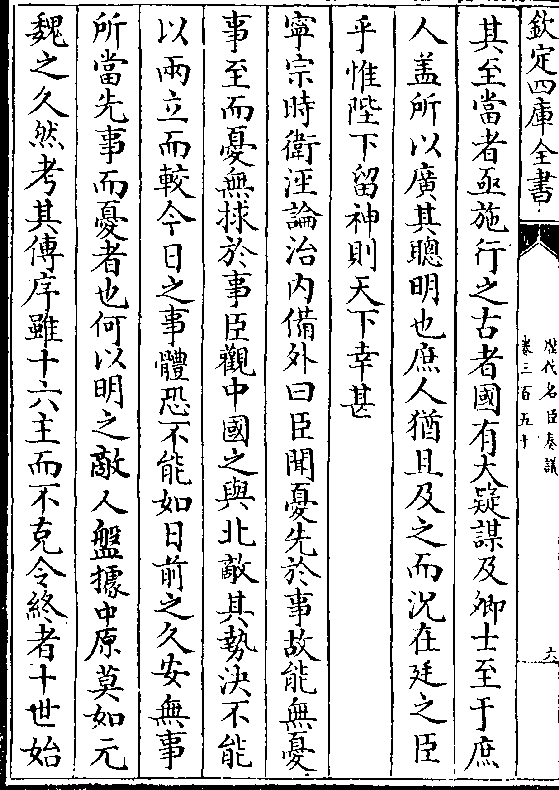 欽定四庫全書
歷代名臣奏議
卷三百五十
六
其至當者亟施行之古者國有大疑謀及卿士至于庶
人盖所以廣其聰明也庶人猶且及之而況在廷之臣
乎惟陛下留神則天下幸甚
寧宗時衛涇論治內備外曰臣聞憂先於事故能無憂
事至而憂無捄於事臣觀中國之與北敵其勢決不能
以兩立而較今日之事體恐不能如日前之久安無事
所當先事而憂者也何以明之敵人盤據中原莫如元
魏之久然考其傳序雖十六主而不克令終者十世始